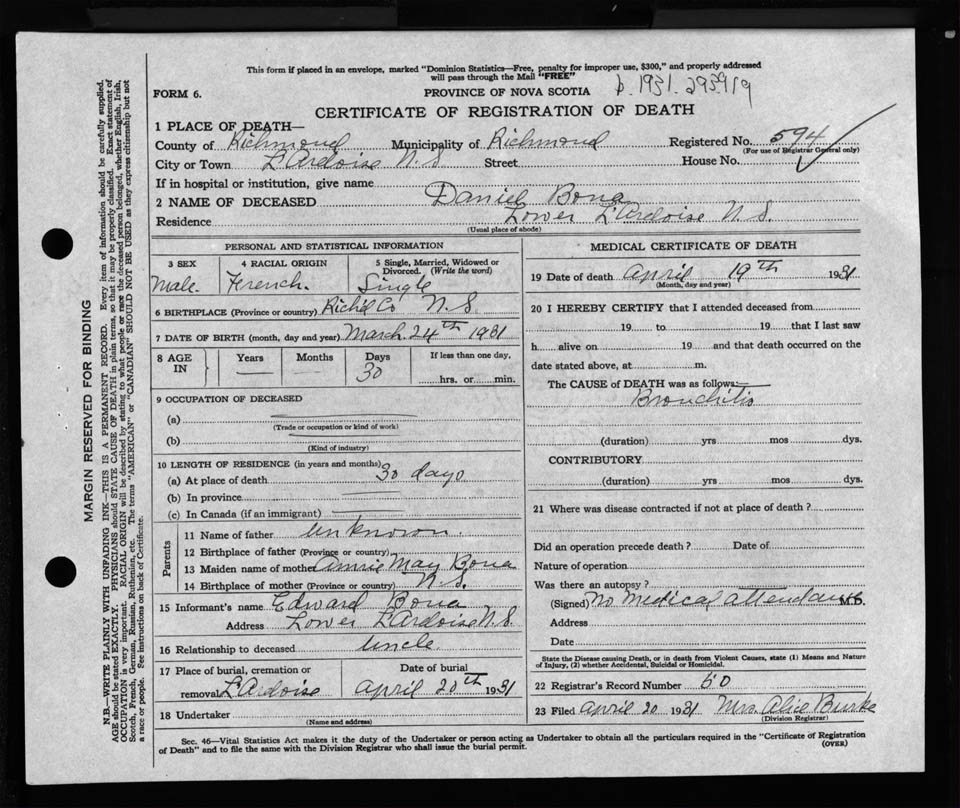 This form if placed in an envelope, marked "Dominion Statistics—Free, penalty for improper use, $300," and properly addressed
will pass through the Mail "FREE"
FORM 6.
PROVINCE OF NOVA SCOTIA
b. 1931.
CERTIFICATE OF REGISTRATION OF DEATH
1 PLACE OF DEATH—
County of Richmond Municipality of Richmond Registered No. 594
(For use of Registrar General only)
City or Town L'Ardoise N.S Street House No.
If in hospital or institution, give name
2 NAME OF DECEASED Daniel Bona
Residence Lower L'Ardoise N.S.
(Usual place of abode)
PERSONAL AND STATISTICAL INFORMATION
3 SEX
Male.
4 RACIAL ORIGIN
French.
5 Single, Married, Widowed or
Divorced. (Write the word)
Single
6 BIRTHPLACE (Province or country) Rich'd Co N.S
7 DATE OF BIRTH (month, day and year) March 24th 1931
8 AGE
IN
Years
Months
Days
30
If less than one day,
hrs. or min.
9 OCCUPATION OF DECEASED
(a)
(Trade or occupation or kind of work)
(b)
(Kind of industry)
10 LENGTH OF RESIDENCE (in years and months)
(a) At place of death 30 days
(b) In province
(c) In Canada (if an immigrant)
Parents
11 Name of father Unknown.
12 Birthplace of father (Province or country)
13 Maiden name of mother Annie May Bona
14 Birthplace of mother (Province or country) N.S.
15 Informant's name Edward Bona
Address Lower L'Ardoise N.S.
16 Relationship to deceased Uncle.
17 Place of burial, cremation or
removal L'Ardoise
Date of burial
April 20th 1931
18 Undertaker
(Name and address)
MEDICAL CERTIFICATE OF DEATH
19 Date of death April 19th 1931
(Month, day and year)
20 I HEREBY CERTIFY that I attended deceased from
19 to 19 that I last saw
h alive on 19 and that death occurred on the
date stated above, at m.
The CAUSE of DEATH was as follows:—
Bronchitis
(duration) yrs mos dys.
CONTRIBUTORY
(duration) yrs mos dys.
21 Where was disease contracted if not at place of death?
Did an operation precede death? Date of
Nature of operation
Was there an autopsy?
(Signed) No medical attendance M.D.
Address
Date
State the Disease causing Death, or in death from Violent Causes, state (1) Means and Nature
of Injury, (2) whether Accidental, Suicidal or Homicidal.
22 Registrar's Record Number 50
23 Filed April 20 1931 Mrs. Alice Burke
(Division Registrar)
Sec. 46—Vital Statistics Act makes it the duty of the Undertaker or person acting as Undertaker to obtain all the particulars required in the "Certificate of Registration
of Death" and to file the same with the Division Registrar who shall issue the burial permit.
(OVER)
MARGIN RESERVED FOR BINDING
N.B.—WRITE PLAINLY WITH UNFADING INK—THIS IS A PERMANENT RECORD. Every item of information should be carefully supplied.
AGE should be stated EXACTLY. PHYSICIANS should STATE CAUSE OF DEATH in plain terms, so that it may be properly classified. Exact statement of
OCCUPATION is very important. RACIAL ORIGIN will be described by stating to what people or race the deceased person belonged, whether English, Irish,
Scotch, French, German, Russian, Ruthenian, etc. The terms "AMERICAN" or "CANADIAN" SHOULD NOT BE USED as they express citizenship but not
a race or people. See instructions on back of Certificate.